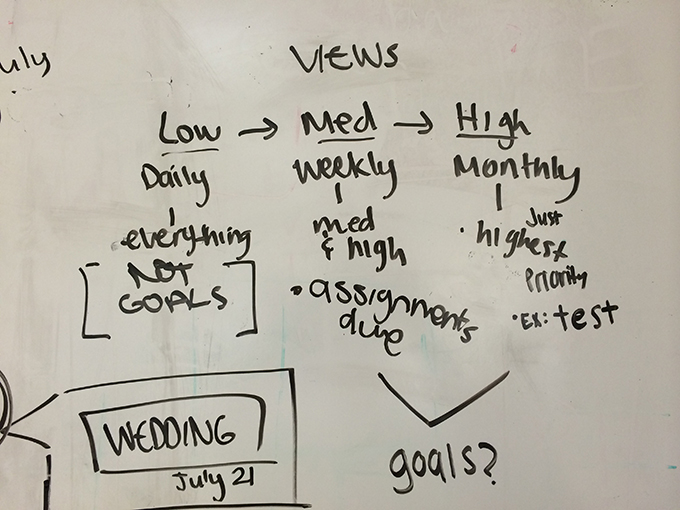 uly
VIEWS
Low → Med → High
Daily
everything
[NOT
GOALS]
weekly
med
& high
• assignments
due
Monthly
• Just
highest
Priority
• EX: test
goals?
WEDDING
July 21